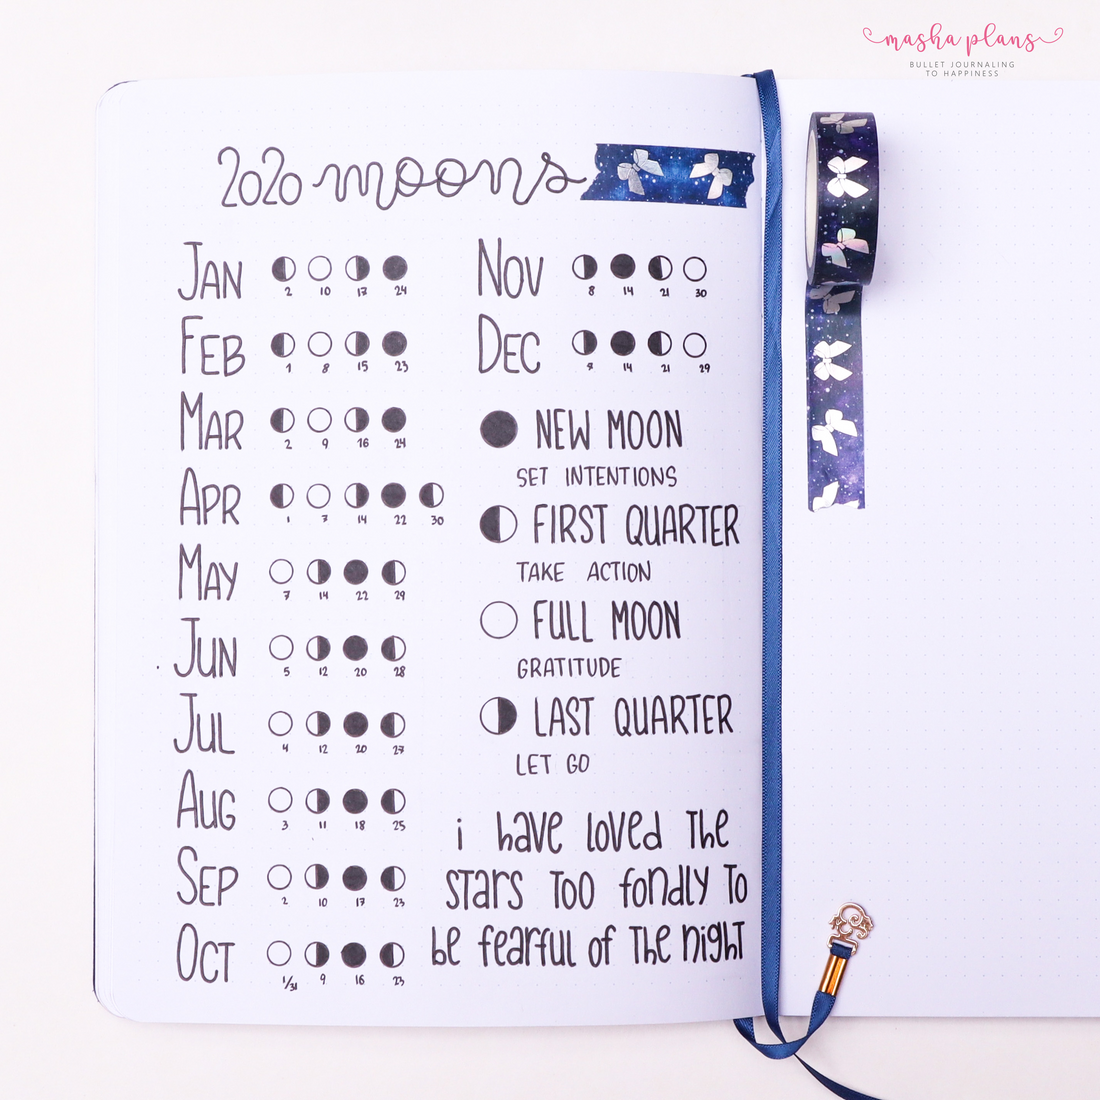 masha plans
BULLET JOURNALING
TO HAPPINESS
2020 moons
JAN
2 10 17 24
FEB
1 8 15 23
MAR
2 9 16 24
APR
1 7 14 22 30
MAY
7 14 22 29
JUN
5 12 20 28
JUL
4 12 20 27
AUG
3 11 18 25
SEP
2 10 17 23
OCT
1/31 9 16 23
NOV
8 14 21 30
DEC
14 21 29
NEW MOON
SET INTENTIONS
FIRST QUARTER
TAKE ACTION
FULL MOON
GRATITUDE
LAST QUARTER
LET GO
i have loved the
stars too fondly to
be fearful of the night